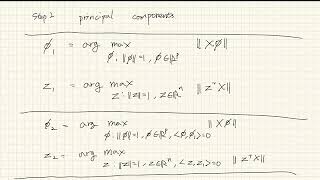 Step 2 principal components
ϕ₁ = arg max ‖Xϕ‖
ϕ: ‖ϕ‖=1, ϕ∈ℝᵖ
z₁ = arg max ‖zᵀX‖
z: ‖z‖=1, z∈ℝⁿ
ϕ₂ = arg max ‖Xϕ‖
ϕ: ‖ϕ‖=1, ϕ∈ℝᵖ, <ϕ,ϕ₁>=0
z₂ = arg max
z: ‖z‖=1, z∈ℝⁿ, <z,z₁>=0 ‖zᵀX‖